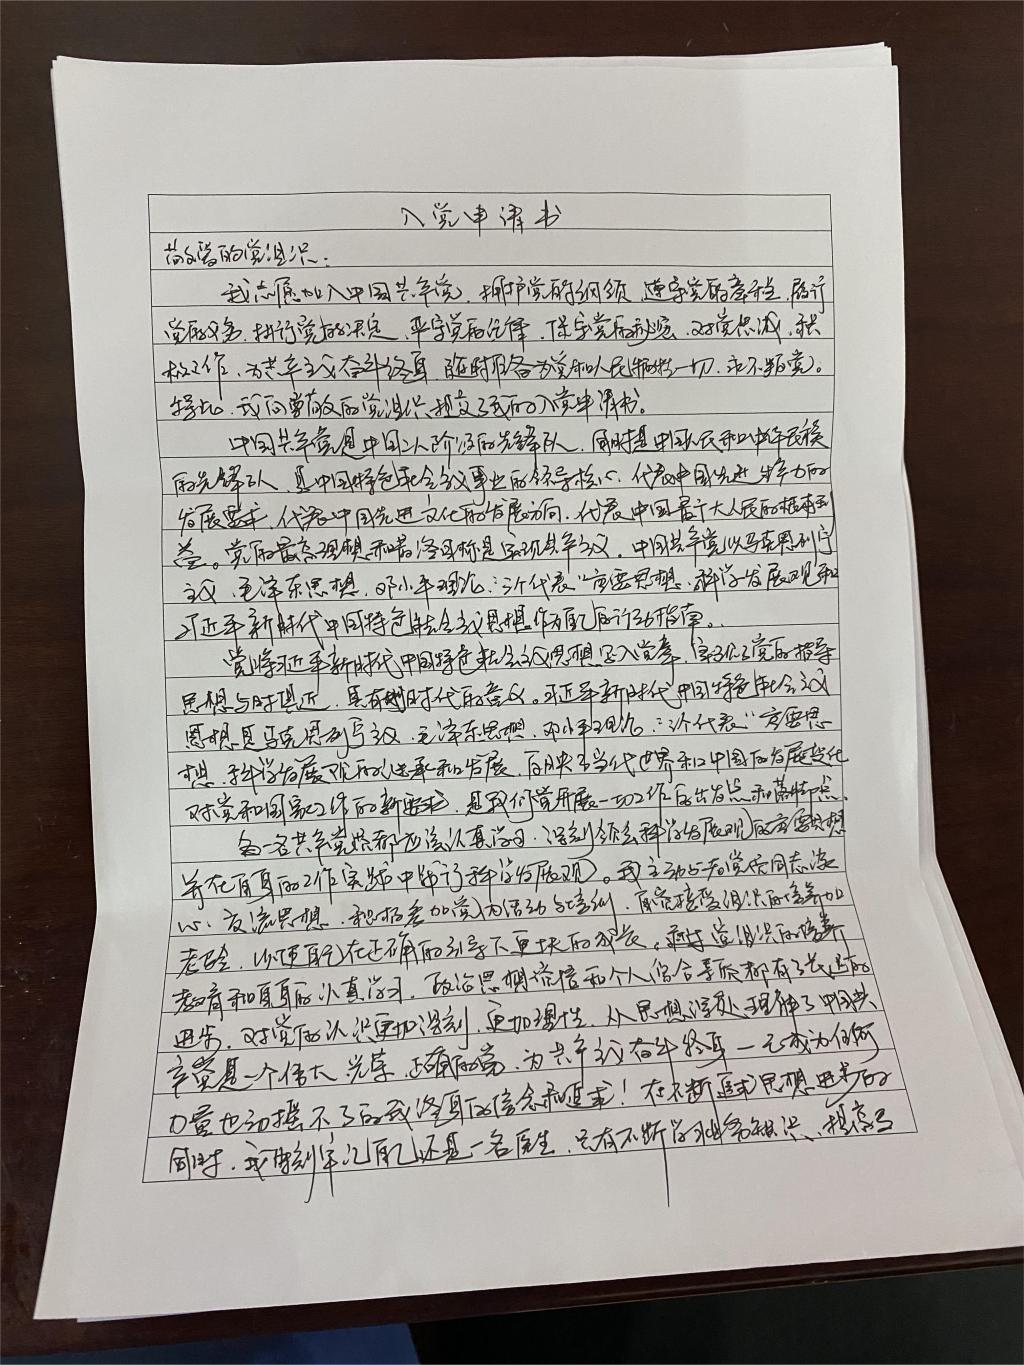 入党申请书
敬爱的党组织:
我志愿加入中国共产党,拥护党的纲领,遵守党的章程,履行
党的义务,执行党的决定,严守党的纪律,保守党的秘密,对党忠诚,积
极工作,为共产主义奋斗终身,随时准备为党和人民牺牲一切,永不叛党。
特此,我向敬爱的党组织提交了我的入党申请书。
中国共产党是中国工人阶级的先锋队,同时是中国人民和中华民族
的先锋队,是中国特色社会主义事业的领导核心,代表中国先进生产力的
发展要求,代表中国先进文化的发展方向,代表中国最广大人民的根本利
益。党的最高理想和最终目标是实现共产主义。中国共产党以马克思列宁
主义、毛泽东思想、邓小平理论、“三个代表”重要思想、科学发展观和
习近平新时代中国特色社会主义思想作为自己的行动指南。
党将习近平新时代中国特色社会主义思想写入党章,实现了党的指导
思想与时俱进,具有划时代的意义。习近平新时代中国特色社会主义
思想是马克思列宁主义、毛泽东思想、邓小平理论、“三个代表”重要思
想、科学发展观的继承和发展,反映了当代世界和中国的发展变化
对党和国家工作的新要求,是我们党开展一切工作的出发点和落脚点。
每一名共产党员都应该认真学习、深刻领会科学发展观的重要思想
并在自身的工作实践中践行科学发展观。我主动与老党员同志谈
心、交流思想,积极参加党内活动与培训,自觉接受组织的培养和
考验,以便自己在正确的引导下更快的成长。通过党组织的培养
教育和自身的认真学习,政治思想觉悟和个人综合素质都有了长足的
进步,对党的认识更加深刻,更加理性,从思想深处理解了中国共
产党是一个伟大、光荣、正确的党,为共产主义奋斗终身一定成为任何
力量也动摇不了的我终身的信念和追求!在不断追求思想进步的
同时,我时刻牢记自己还是一名医生,只有不断学习业务知识、提高自